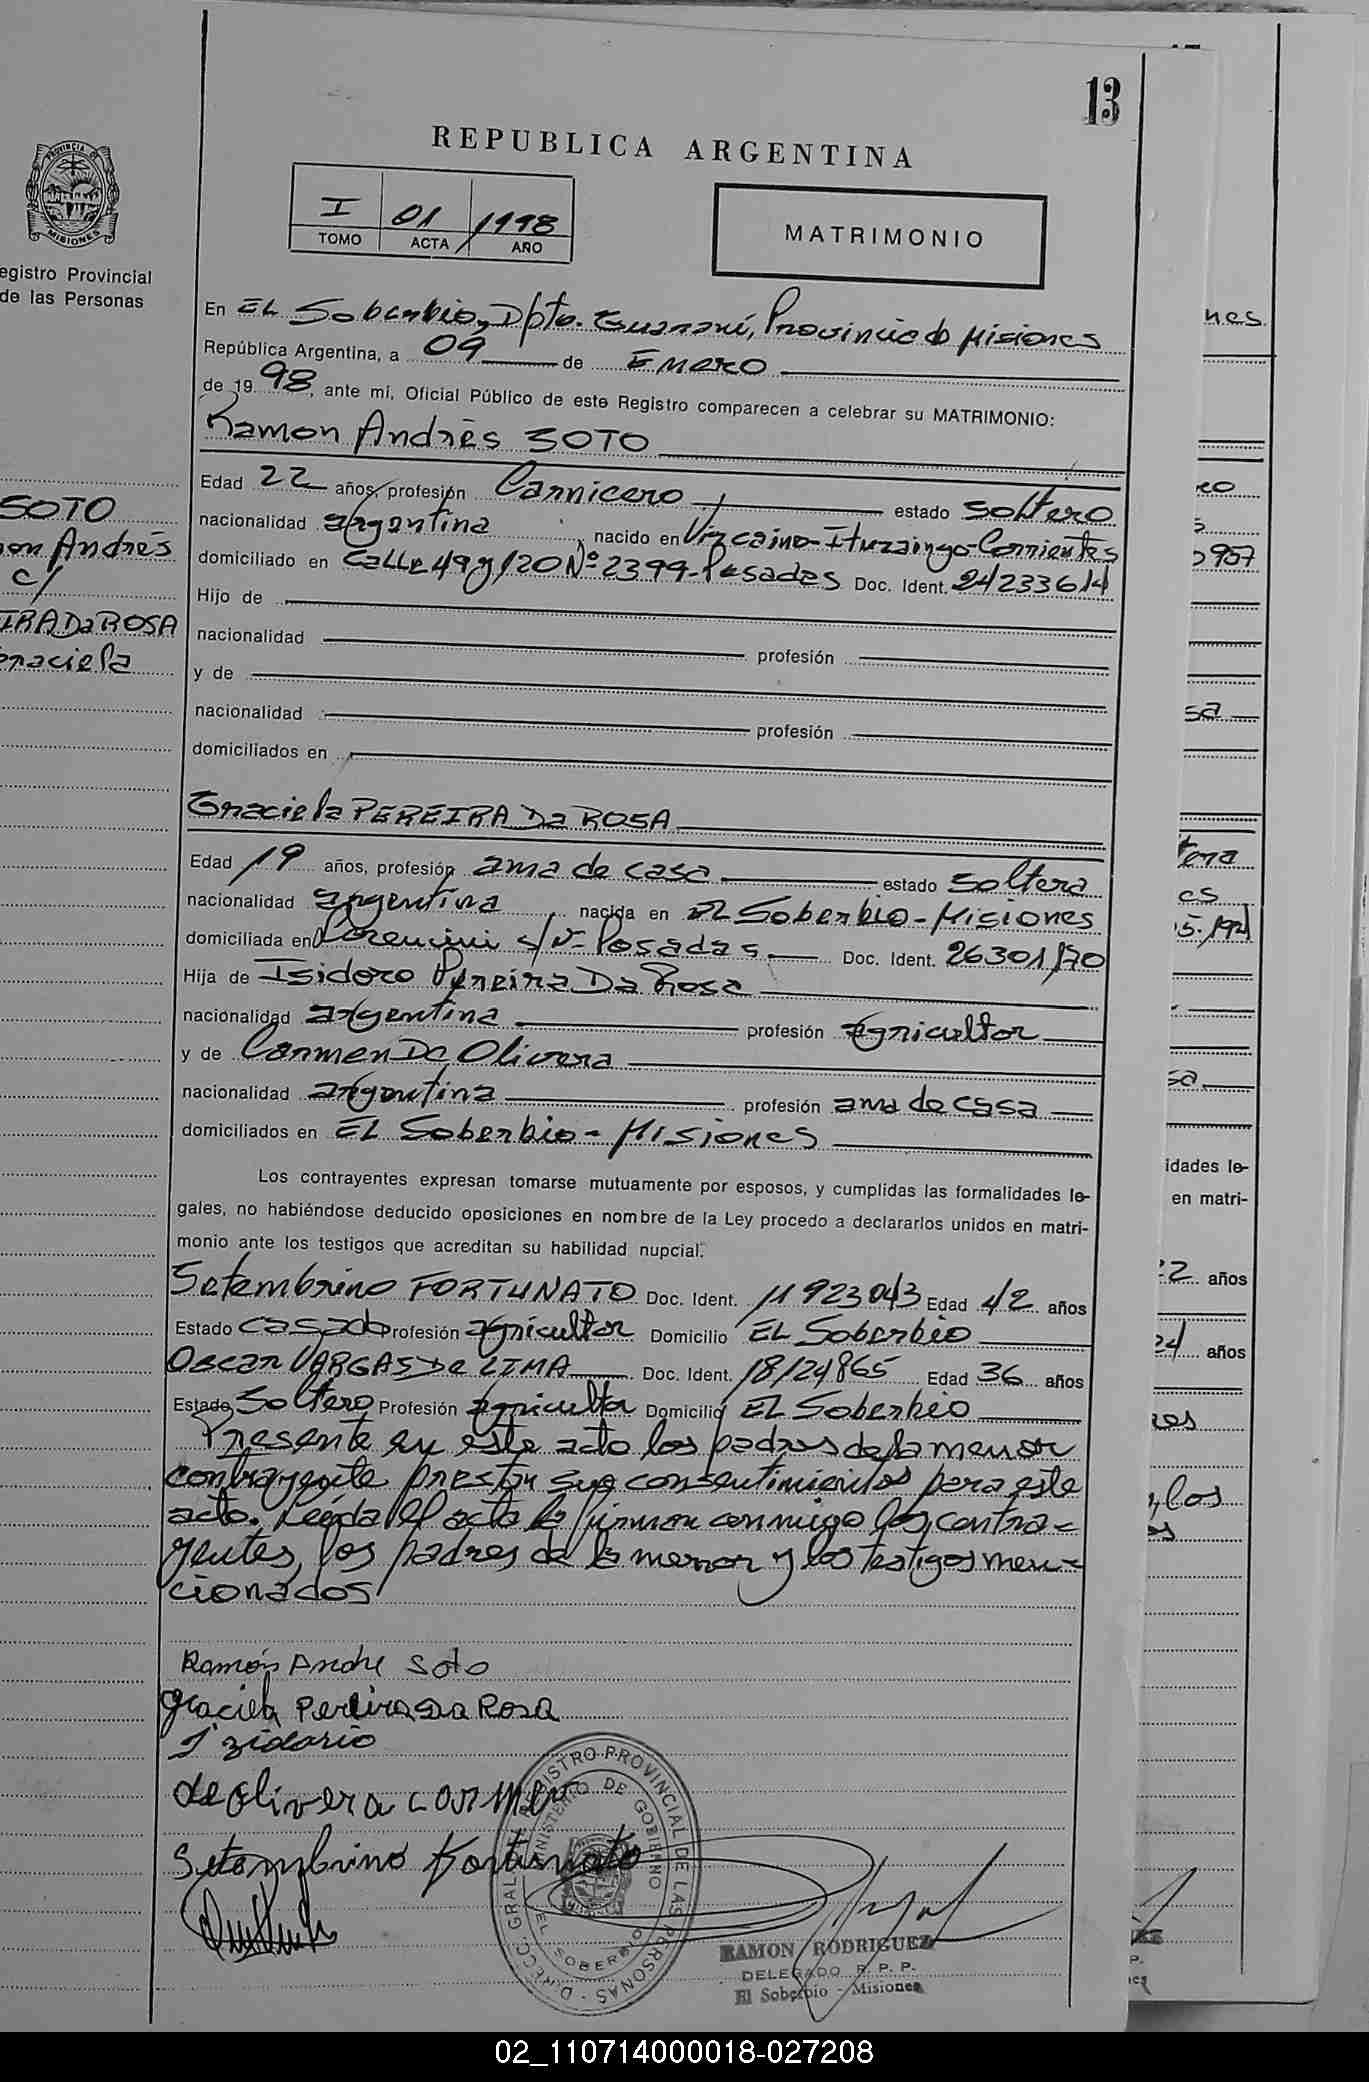 13
REPUBLICA ARGENTINA
I 01 1998
TOMO ACTA AÑO
MATRIMONIO
PROVINCIA DE MISIONES
egistro Provincial
de las Personas
SOTO
on Andrés
c/
IRA Da ROSA
raciela
En EL Soberbio, Dpto. Guaraní, Provincia de Misiones
República Argentina, a 09 de Enero
de 19 98, ante mí, Oficial Público de este Registro comparecen a celebrar su MATRIMONIO:
Ramon Andrés SOTO
Edad 22 años, profesión Carnicero estado soltero
nacionalidad argentina, nacido en Vizcaino-Ituzaingo-Corrientes
domiciliado en Calle 49 y 120 Nº 2399-Posadas Doc. Ident. 24233614
Hijo de
nacionalidad profesión
y de
nacionalidad profesión
domiciliados en
Graciela PEREIRA Da ROSA
Edad 19 años, profesión ama de casa estado soltera
nacionalidad argentina, nacida en EL Soberbio-Misiones
domiciliada en Lorencini s/Nº Posadas Doc. Ident. 26301170
Hija de Isidoro Pereira Da Rosa
nacionalidad argentina profesión agricultor
y de Carmen De Olivera
nacionalidad argentina profesión ama de casa
domiciliados en EL Soberbio-Misiones
Los contrayentes expresan tomarse mutuamente por esposos, y cumplidas las formalidades le-
gales, no habiéndose deducido oposiciones en nombre de la Ley procedo a declararlos unidos en matri-
monio ante los testigos que acreditan su habilidad nupcial.
Setembrino FORTUNATO Doc. Ident. 11923043 Edad 42 años
Estado casado Profesión agricultor Domicilio EL Soberbio
Oscar VARGAS De LIMA Doc. Ident. 18124865 Edad 36 años
Estado Soltero Profesión agriculto Domicilio EL Soberbio
Presente en este acto los padres de la menor
contrayente prestan sus consentimientos para este
acto. Leída el acta la firman conmigo los contra=
yentes, los padres de la menor y los testigos men=
cionados
Ramón Andre Soto
Graciela Pereira Da Rosa
I'zidorio
de olivera carmen
Setembrino Fortunato
DIREC. GRAL. REGISTRO PROVINCIAL DE LAS PERSONAS
MINISTERIO DE GOBIERNO
EL SOBERBIO
RAMON RODRIGUEZ
DELEGADO R. P. P.
El Soberbio - Misiones
nes
907
sa
tera
es
idades le-
en matri-
22 años
años
los
02_110714000018-027208